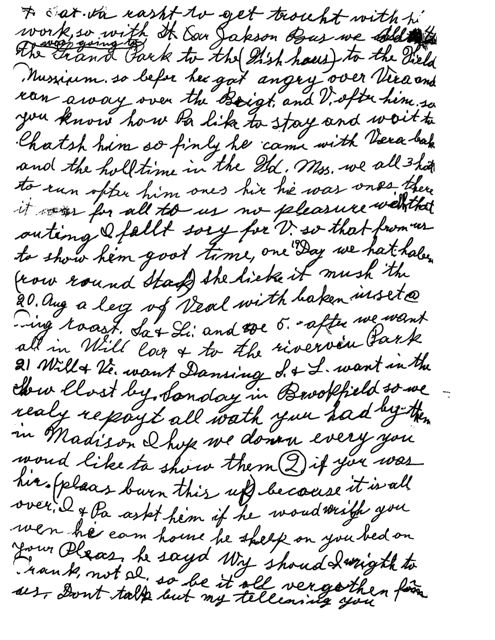 & eat. Pa rasht to get trought with hi
work, so with St. Car Jakson Bus we
was going to
The Grand Park to the (Fish haus) to the Field
Mussium. so befor her got angry over Vera and
ran away over the Beigt. and V. after him. so
you know how Pa like to stay and wait to
Chatsh him so finly he came with Vera bak
and the holl time in the Fld. Mss. we all 3 hat
to run after him ones hir he was ones there
it was for all to us no pleasure with that
outing I fellt sory for V. so that from us
to show him goot time, one Day we hat haben
(row round Stack) She licke it mush the
20. Aug a leg of Veal with baken inset @
ing roast. Sa & Li. and we 5. after we want
all in Will Car & to the riverview Park
21 Will & Vi. want Dansing S. & L. want in the
Show Clost by. Sanday in Brookfield so we
realy repayt all wath you had by them
in Madison I hope we donn every you
woud like to show them (2) if you was
hir. (pleas burn this up) because it is all
over, I & Pa askt him if he woud wrigh you
wen he cam house he sleep on you bed on
your Pleas, he sayd Wy shoud I wright to
Frank, not I. so be it all vergethen from
us, Dont talk but my tellening you